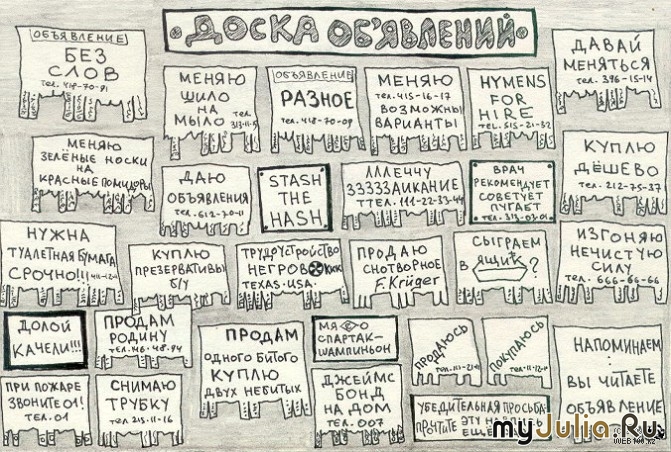 ДОСКА ОБЪЯВЛЕНИЙ
ОБЪЯВЛЕНИЕ
БЕЗ
СЛОВ
тел. 417-70-91
МЕНЯЮ
ШИЛО
НА
МЫЛО
ОБЪЯВЛЕНИЕ
РАЗНОЕ
тел. 418-70-09
МЕНЯЮ
тел. 415-16-17
ВОЗМОЖНЫ
ВАРИАНТЫ
HYMENS
FOR
HIRE
TEL. 515-21-32
ДАВАЙ
МЕНЯТЬСЯ
тел. 396-15-14
МЕНЯЮ
ЗЕЛЁНЫЕ НОСКИ
НА
КРАСНЫЕ ПОМИДОРЫ
ДАЮ
ОБЪЯВЛЕНИЯ
тел. 612-70-11
STASH
THE
HASH
ЛЛЛЕЧЧУ
ЗЗЗЗЗАИКАНИЕ
ТТЕЛ. 111-22-33-44
ВРАЧ
РЕКОМЕНДУЕТ
СОВЕТУЕТ
ПУГАЕТ
тел. 313-03-01
КУПЛЮ
ДЁШЕВО
тел. 212-75-37
НУЖНА
ТУАЛЕТНАЯ БУМАГА
СРОЧНО!!!
КУПЛЮ
ПРЕЗЕРВАТИВЫ
Б/У
ТРУДОУСТРОЙСТВО
НЕГРОВ KKK
TEXAS. USA.
ПРОДАЮ
СНОТВОРНОЕ
F. Krüger
СЫГРАЕМ
В ЯЩИК?
ИЗГОНЯЮ
НЕЧИСТУЮ
СИЛУ
тел. 666-66-66
ДОЛОЙ
КАЧЕЛИ!!!
ПРОДАМ
РОДИНУ
тел. 46-48-94
ПРОДАМ
ОДНОГО БИТОГО
КУПЛЮ
ДВУХ НЕБИТЫХ
СПАРТАК-
ШАМПИНЬОН
ПРОДАЮСЬ
ПОКУПАЮСЬ
НАПОМИНАЕМ:
ВЫ ЧИТАЕТЕ
ОБЪЯВЛЕНИЕ
ПРИ ПОЖАРЕ
ЗВОНИТЕ 01!
тел. 01
СНИМАЮ
ТРУБКУ
тел 215-11-16
ДЖЕЙМС
БОНД
НА ДОМ
тел. 007
УБЕДИТЕЛЬНАЯ ПРОСЬБА:
myJulia.Ru